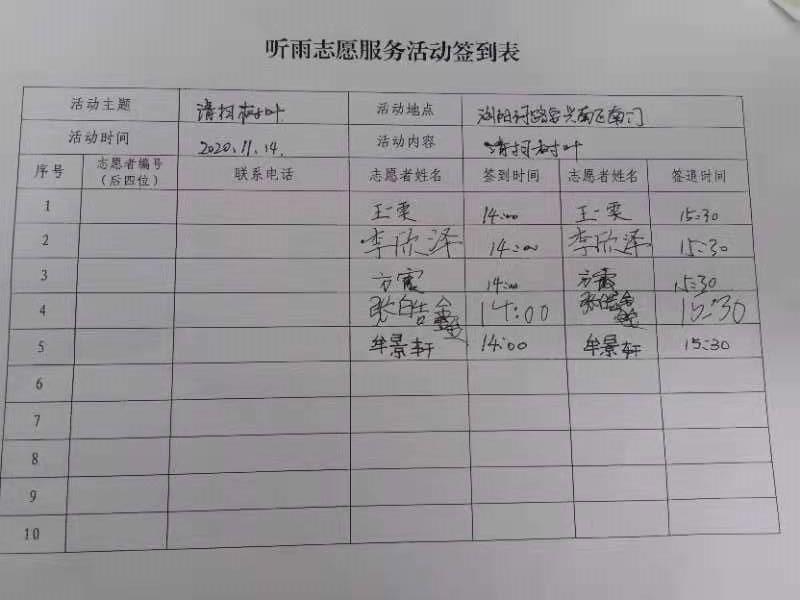 听雨志愿服务活动签到表
活动主题 清扫树叶 活动地点 浏阳河路客兴南区南门
活动时间 2020.11.14. 活动内容 清扫树叶
序号 志愿者编号（后四位） 联系电话 志愿者姓名 签到时间 志愿者姓名 签退时间
1 王一雯 14:00 王一雯 15:30
2 李欣泽 14:00 李欣泽 15:30
3 方震 14:00 方震 15:30
4 张皓 14:00 张皓 15:30
5 牟景轩 14:00 牟景轩 15:30
6
7
8
9
10